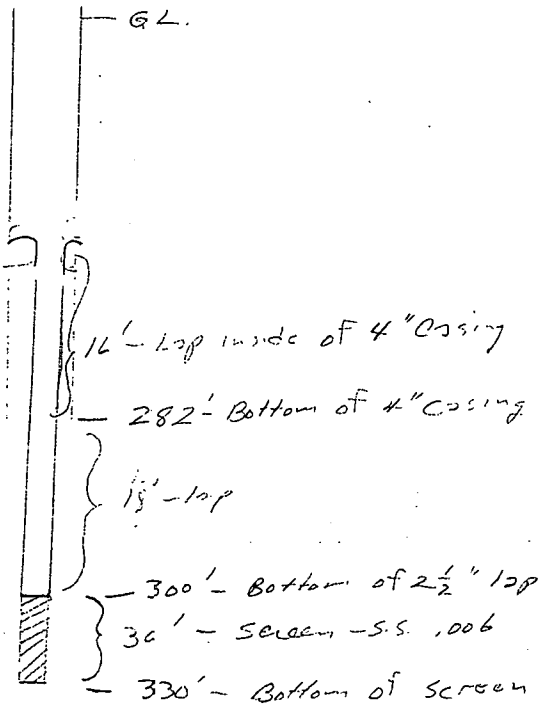 GL.
16'- Lap inside of 4" Casing
282'- Bottom of 4" Casing
18'- lap
300'- Bottom of 2½" lap
30' - Screen - S.S. .006
330'- Bottom of Screen